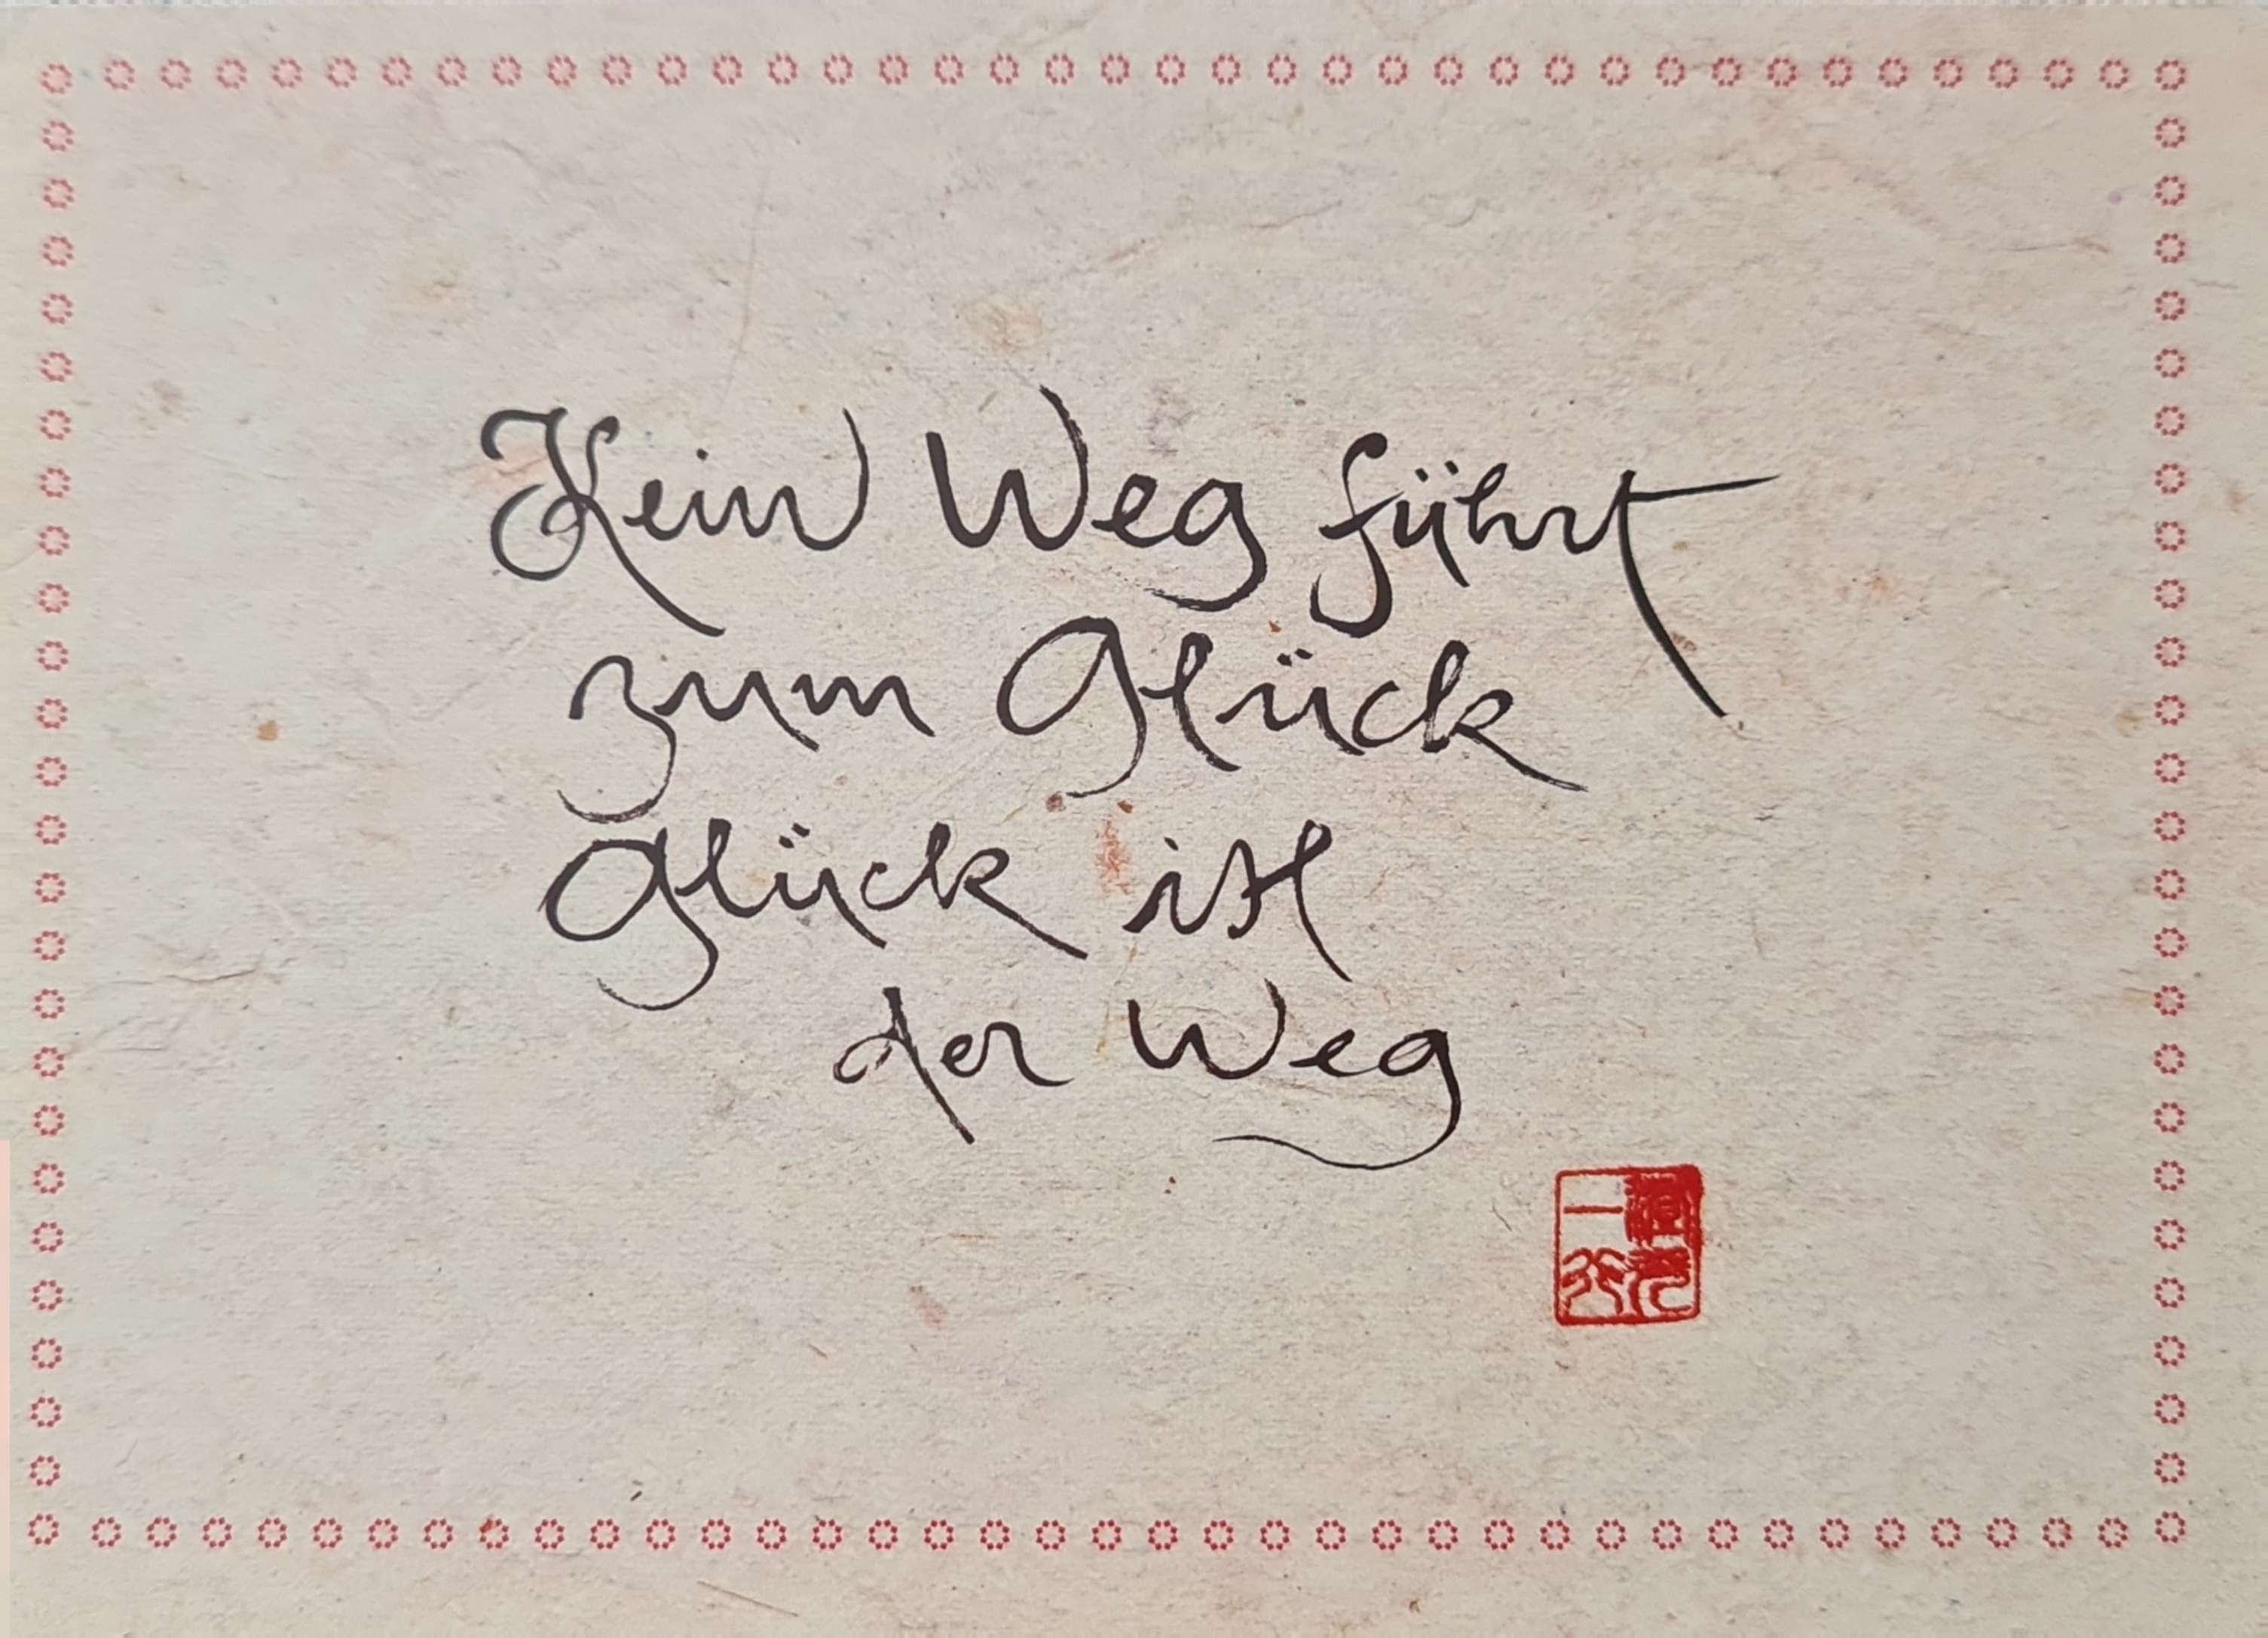 Kein Weg führt
zum Glück
Glück ist
der Weg